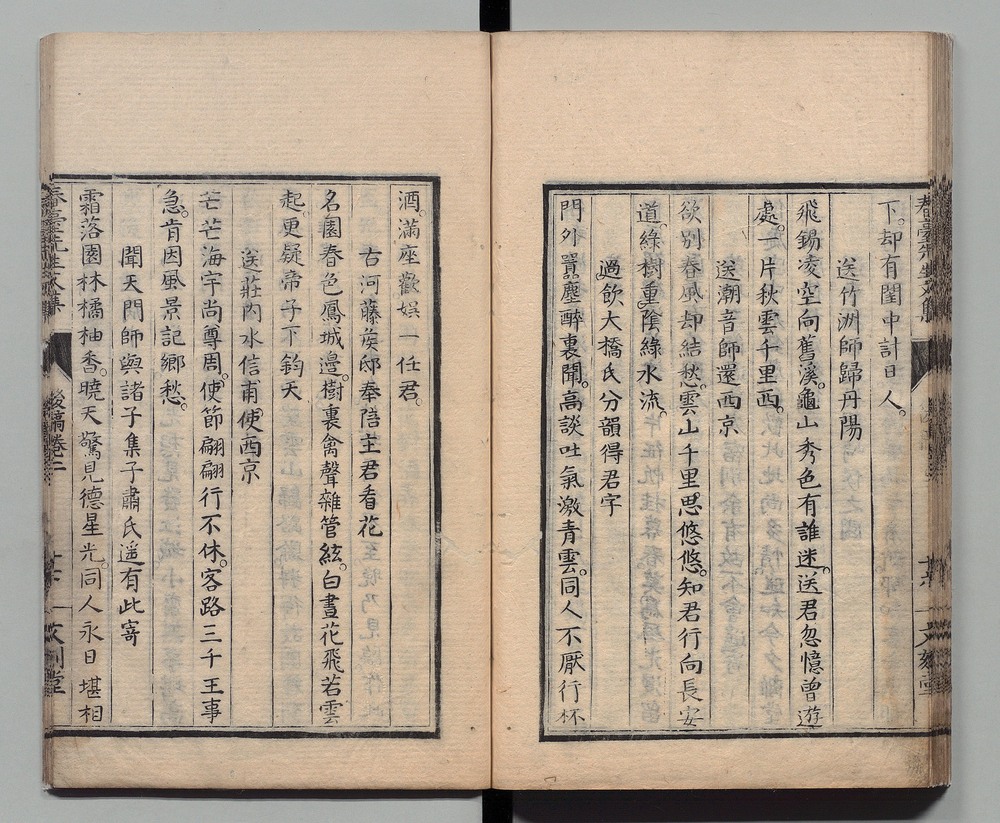 下却有閨中計日人。
送竹洲師歸丹陽
飛錫凌空向舊溪。龜山秀色有誰迷。送君忽憶曾遊
處。一片秋雲千里西。
送潮音師還西京
欲別春風却結愁。雲山千里思悠悠。知君行向長安
道。綠樹重陰綠水流。
過飲大橋氏分韻得君字
門外囂塵醉裏聞。高談吐氣激青雲。同人不厭行杯
酒。滿座歡娛一任君。
古河藤矦邸奉陪主君看花
名園春色鳳城邊。樹裏禽聲雜管絃。白晝花飛若雲
起。更疑帝子下鈞天
送莊內水信甫使西京
芒芒海宇尚尊周。使節翩翩行不休。客路三千王事
急。肯因風景記鄉愁。
聞天門師與諸子集子肅氏遥有此寄
霜落園林橘柚香。曉天驚見德星光。同人永日堪相
春臺先生文集
後稿卷二